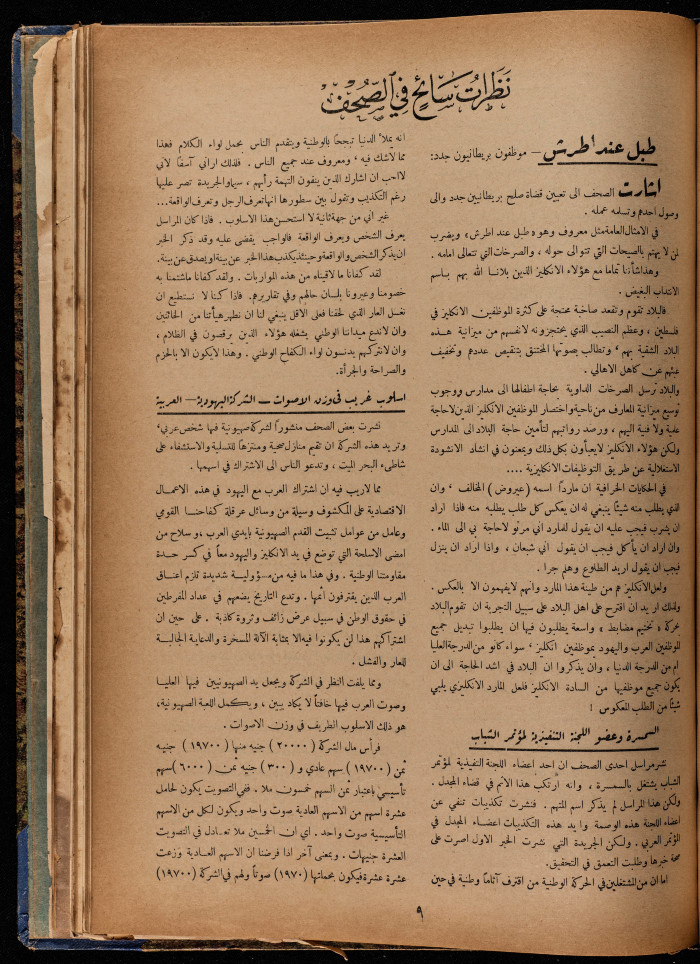 نَظَراتُ سَائِحٍ فِي الصُّحُفِ
طبل عند اطرش — موظفون بريطانيون جدد:
اشارت الصحف الى تعيين قضاة صلح بريطانيين جدد والى
وصول احدهم وتسلمه عمله .
في الامثال العامة مثل معروف وهو « طبل عند اطرش » ويضرب
لمن لا يهتم بالصيحات التي تتوالى حوله ، والصرخات التي تتعالى امامه .
وهذا شأننا تماما مع هؤلاء الانكليز الذين بلانا الله بهم باسم
الانتداب البغيض .
فالبلاد تقوم وتقعد صاخبة محتجة على كثرة الموظفين الانكليز في
فلسطين ، وعظم النصيب الذي يحتجزونه لانفسهم من ميزانية هذه
البلاد الشقية بهم ، وتطالب بصوتها المختنق بتنقيص عددهم وتخفيف
عبئهم عن كاهل الاهالي .
والبلاد ترسل الصرخات الداوية بحاجة اطفالها الى مدارس ووجوب
توسيع ميزانية المعارف من ناحية واختصار الموظفين الانكليز الذين لاحاجة
علمية ولا فنية اليهم ، ورصد رواتبهم لتأمين حاجة البلاد الى المدارس
ولكن هؤلاء الانكليز لايعبأون بكل ذلك ويمعنون في انشاد الانشودة
الاستغلالية عن طريق التوظيفات الانكليزية ....
في الحكايات الخرافية ان ماردا اسمه (عيروض) المخالف ، وان
الذي يطلب منه شيئا ينبغي له ان يعكس كل طلب يطلبه منه فاذا اراد
ان يشرب فيجب عليه ان يقول للمارد اني مرتو لاحاجة بي الى الماء .
وان اراد ان يأكل فيجب ان يقول اني شبعان ، واذا اراد ان ينزل
فيجب ان يقول اريد الطلوع وهلم جرا .
ولعل الانكليز هم من طينة هذا المارد وانهم لايفهمون الا بالعكس .
ولذلك اريد ان اقترح على اهل البلاد على سبيل التجربة ان تقوم البلاد
بحركة « تختيم مضابط » واسعة يطلبون فيها ان يطلبوا تبديل جميع
الموظفين العرب واليهود بموظفين انكليز ' سواء كانو من الدرجة العليا
ام من الدرجة الدنيا ، وان يذكروا ان البلاد في اشد الحاجة الى ان
يكون جميع موظفيها من السادة الانكليز فلعل المارد الانكليزي يلبي
شيئا من الطلب المعكوس !
السمسرة وعضو اللجنة التنفيذية لمؤتمر الشباب
نشر مراسل احدى الصحف ان احد اعضاء اللجنة التنفيذية لمؤتمر
الشباب يشتغل بالسمسرة ، وانه ارتكب هذا الاثم في قضاء المجدل .
ولكن هذا المراسل لم يذكر اسم المتهم . فنشرت تكذيبات تنفي عن
اعضاء اللجنة هذه الوصمة وايد هذه التكذيبات اعضاء المجدل في
المؤتمر العربي . ولكن الجريدة التي نشرت الخبر الاول اصرت على
صحة خبرها وطلبت التعمق في التحقيق.
اما ان من المشتغلين في الحركة الوطنية من اقترف آثاما وطنية في حين
انه يملأ الدنيا تبجحا بالوطنية ويتقدم الناس بحمل لواء الكلام فهذا
مما لاشك فيه ، ومعروف عند جميع الناس . فلذلك اراني آسفا لاني
لا احب ان اشارك الذين ينفون التهمة رأيهم ، سيما والجريدة تصر عليها
رغم التكذيب وتقول بين سطورها انها تعرف الرجل وتعرف الواقعة ...
غير اني من جهة ثانية لا استحسن هذا الاسلوب . فاذا كان المراسل
يعرف الشخص ويعرف الواقعة فالواجب يقضي عليه وقد ذكر الخبر
ان يذكر الشخص والواقعة وحينئذ يكذب هذا الخبر عن بينة او يصدق عن بينة.
لقد كفانا ما لاقيناه من هذه المواربات . ولقد كفانا ماشتمنا به
خصومنا وعيرونا بلسان حالهم وفي تقاريرهم. فاذا كنا لا نستطيع ان
نغسل العار الذي لحقنا فعلى الاقل ينبغي لنا ان نطهر هيأتنا من الخائنين
وان لاندع ميداننا الوطني يشغله هؤلاء الذين يرقصون في الظلام ،
وان لانتركهم يدنسون لواء الكفاح الوطني . وهذا لايكون الا بالحزم
والصراحة والجرأة.
اسلوب غريب في وزن الاصوات — الشركة اليهودية — العربية
نشرت بعض الصحف منشورا لشركة صهيونية فيها شخص عربي ،
وتريد هذه الشركة ان تقيم منازل صحية ومنتزها للتسلية والاستشفاء على
شاطىء البحر الميت ، وتدعو الناس الى الاشتراك في اسهمها .
مما لاريب فيه ان اشتراك العرب مع اليهود في هذه الاعمال
الاقتصادية على المكشوف وسيلة من وسائل عرقلة كفاحنا القومي
وعامل من عوامل تثبيت القدم الصهيونية بايدي العرب ، وسلاح من
امضى الاسلحة التي توضع في يد الانكليز واليهود معا في كسر حدة
مقاومتنا الوطنية . وفي هذا ما فيه من مسؤولية شديدة تلزم اعناق
العرب الذين يقترفون أثمها . وتدع التاريخ يضعهم في عداد المفرطين
في حقوق الوطن في سبيل عرض زائف وثروة كاذبة . على حين ان
اشتراكهم هذا لن يكونوا فيه الا بمثابة الآلة المسخرة والدعاية الجالبة
للعار والفشل .
ومما يلفت النظر في الشركة ويجعل يد الصهيونيين فيها العليا
وصوت العرب فيها خافتا لا يكاد يبين ، ويكمل اللعبة الصهيونية،
هو ذلك الاسلوب الظريف في وزن الاصوات .
فرأس مال الشركة (٢٠٠٠٠) جنيه منها (١٩٧٠٠) جنيه
ثمن (١٩٧٠٠) سهم عادي و (٣٠٠) جنيه ثمن (٦٠٠٠) سهم
تأسيسي باعتبار ثمن السهم خمسون ملا . ففي التصويت يكون لحامل
عشرة اسهم من الاسهم العادية صوت واحد ويكون لكل من الاسهم
التأسيسية صوت واحد . اي ان الخمسين ملا تعادل في التصويت
العشرة جنيهات . وبمعنى آخر اذا فرضنا ان الاسهم العادية وزعت
عشرة عشرة فيكون بحملتها (١٩٧٠) صوتا ولهم في الشركة (١٩٧٠٠)
٩